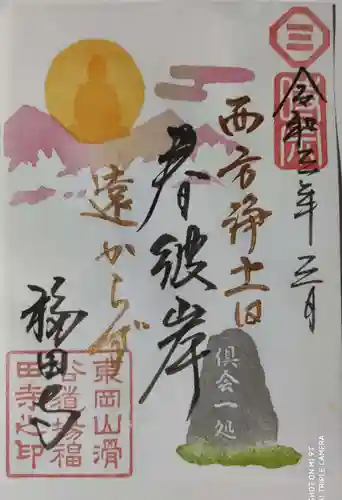 令和三年三月
西方浄土は
春彼岸
遠からず
福田もり
倶会一処
東岡山滑
谷道場福
田寺之印
SHOT ON MI 9T
AI TRIPLE CAMERA